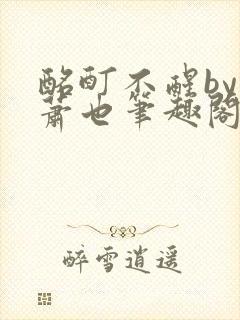 酩酊不醒by
萧也筆趣阁
醉雪逍遥